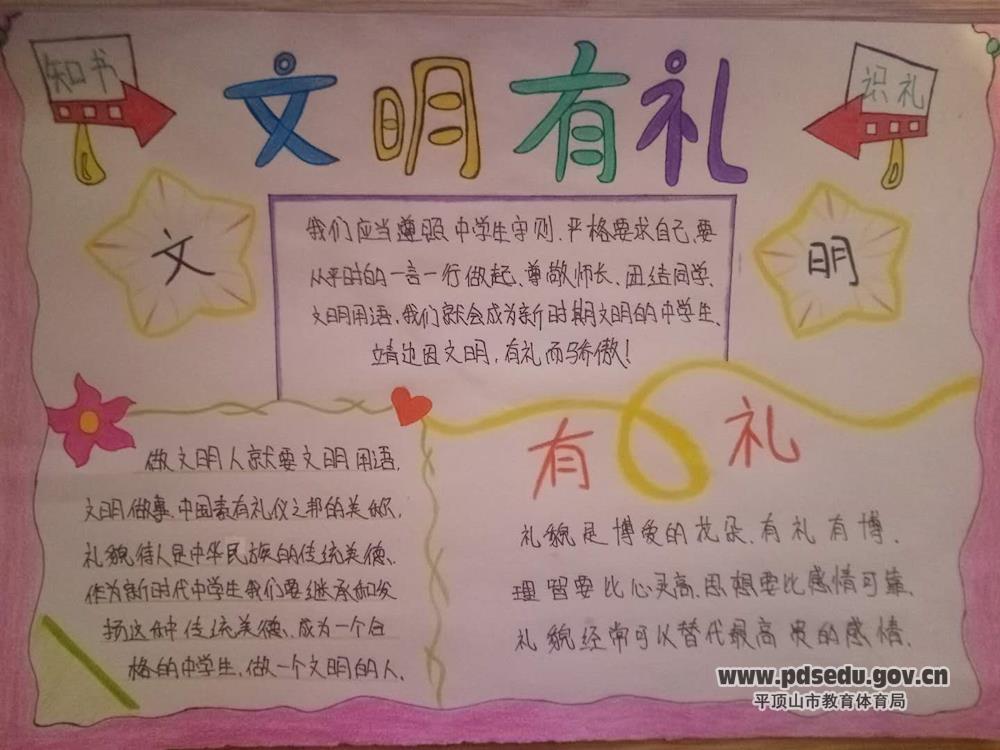 知书
文明有礼
识礼
文
明
我们应当遵照中学生守则、严格要求自己、要
从平时的一言一行做起、尊敬师长、团结同学、
文明用语，我们就会成为新时期文明的中学生、
靖边因文明，有礼而骄傲！
做文明人就要文明用语，
文明做事、中国素有礼仪之邦的美称，
礼貌待人是中华民族的传统美德、
作为新时代中学生我们要继承和发
扬这种传统美德、成为一个合
格的中学生、做一个文明的人、
有礼
礼貌是博爱的花朵、有礼有博、
理智要比心灵高、思想要比感情可靠、
礼貌经常可以替代最高贵的感情、
www.pdsedu.gov.cn
平顶山市教育体育局